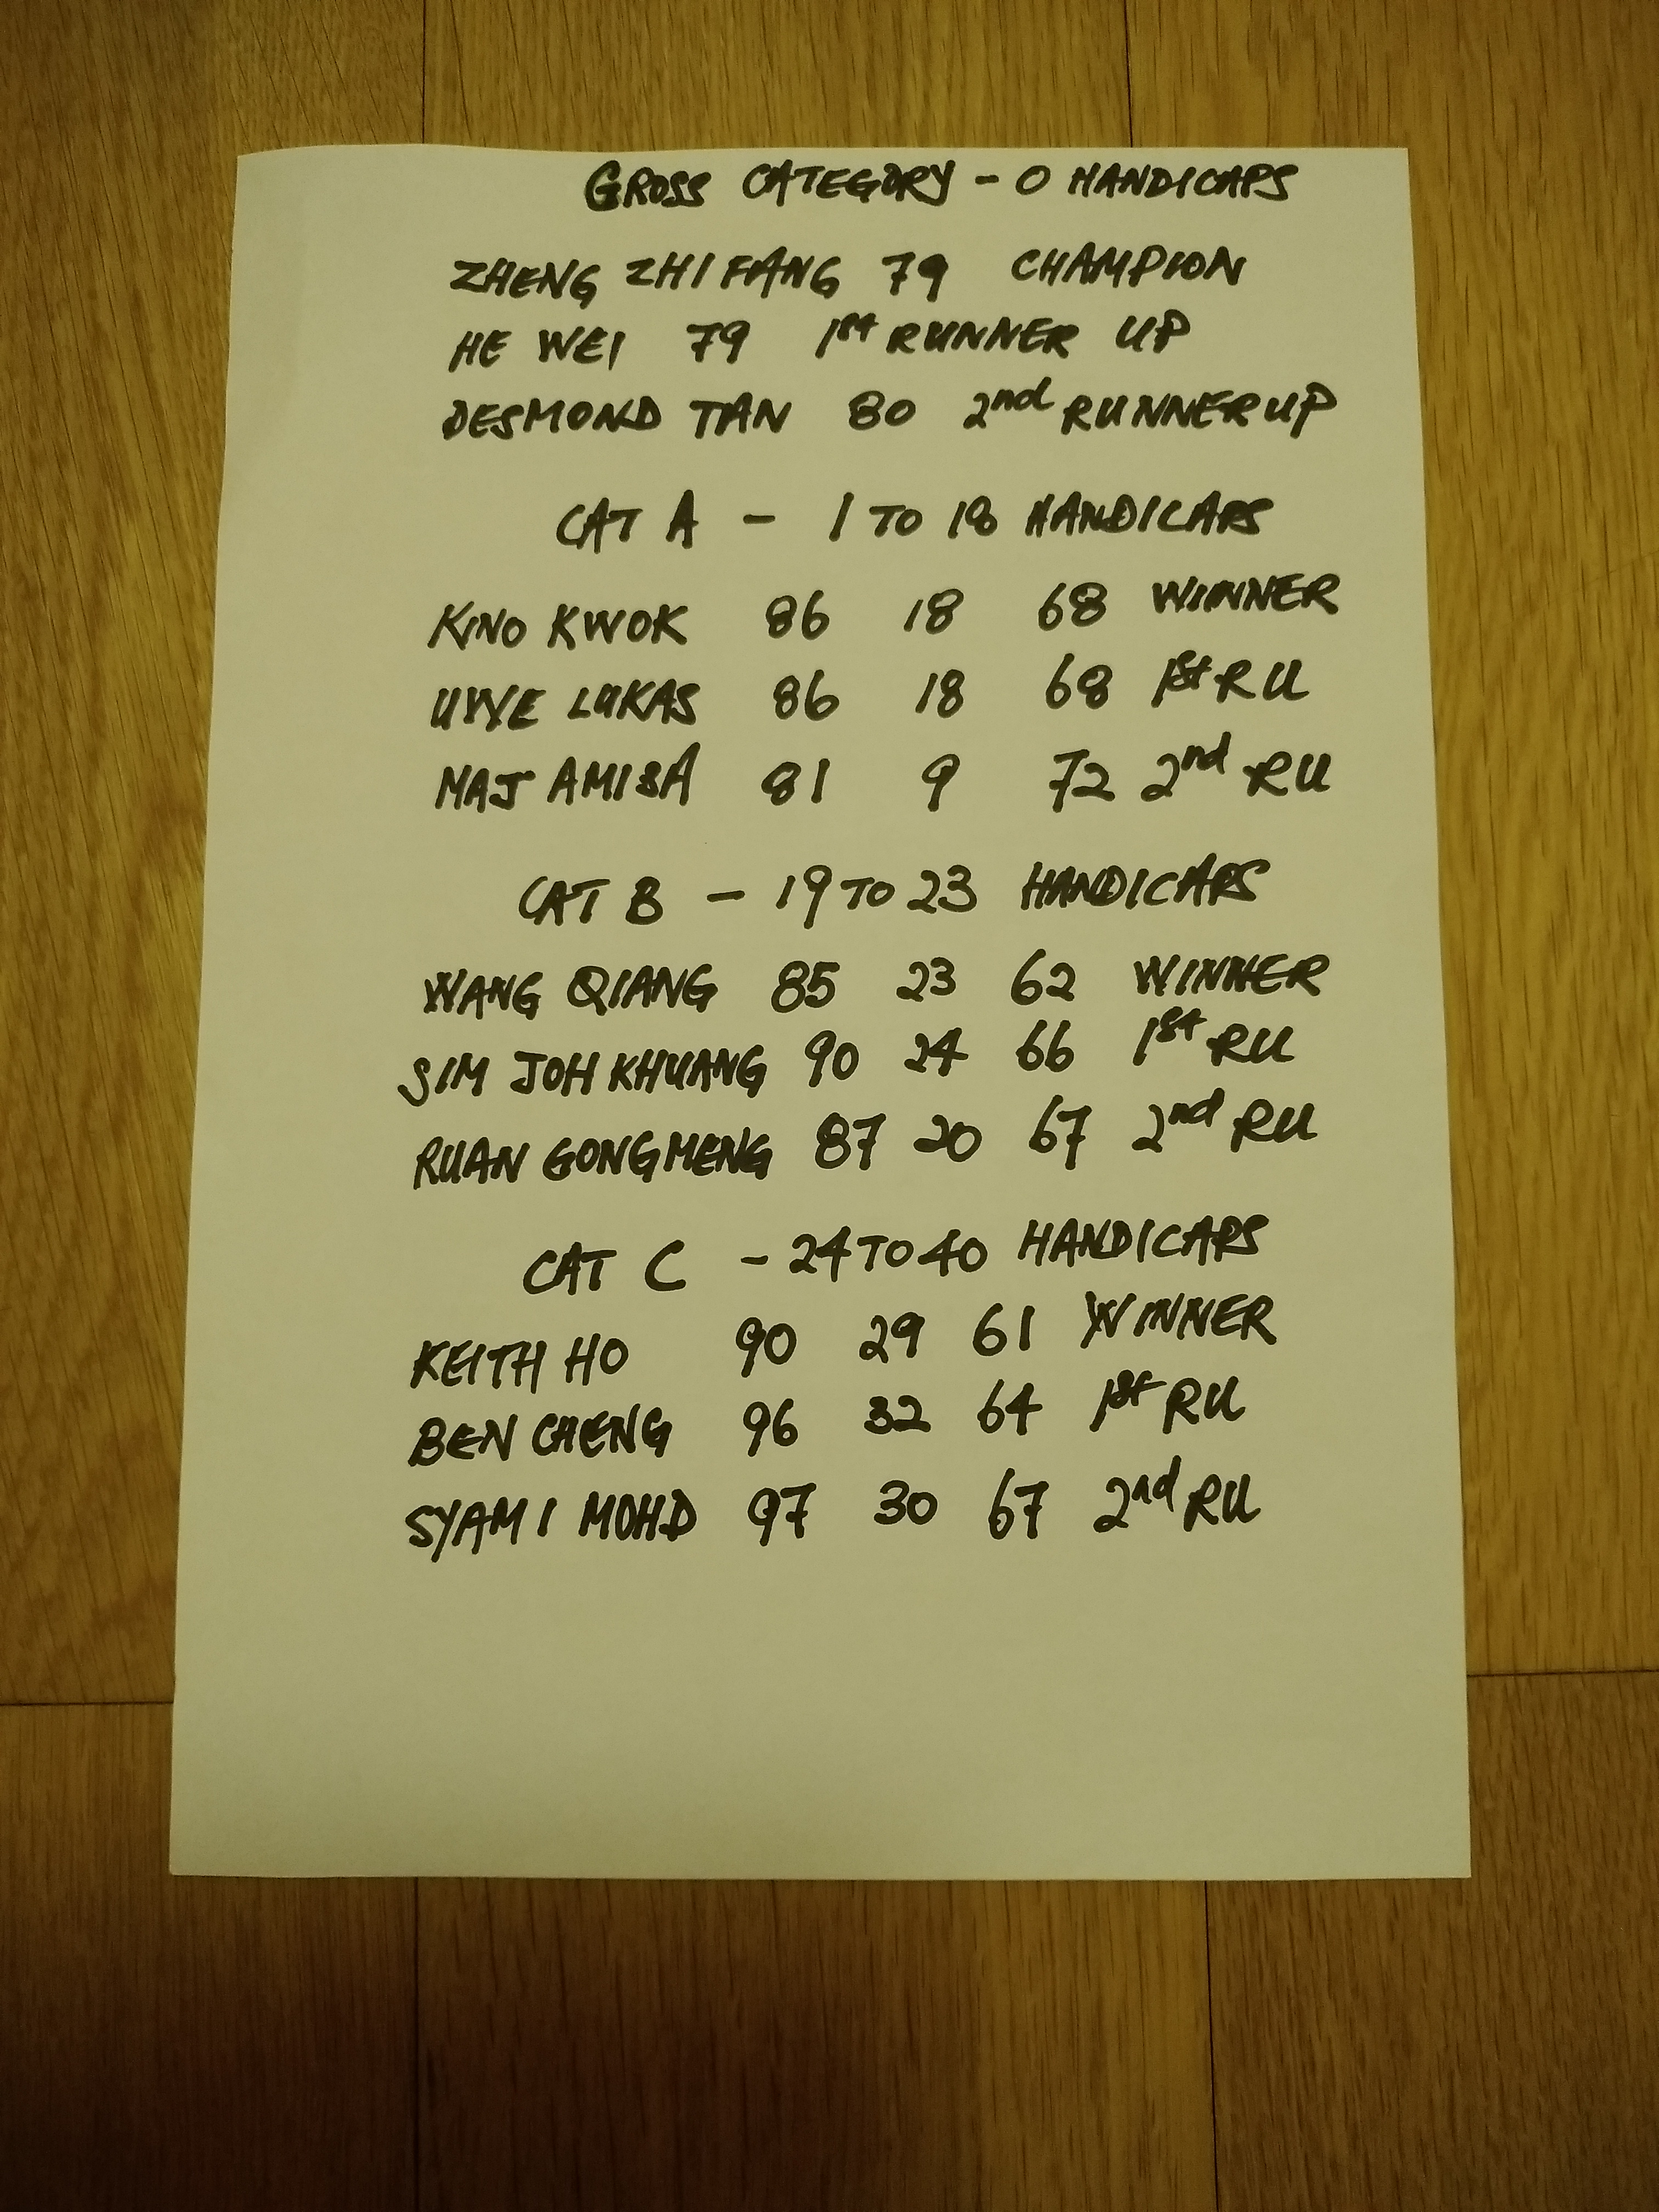 GROSS CATEGORY - 0 HANDICAPS
ZHENG ZHI FANG 79 CHAMPION
HE WEI 79 1st RUNNER UP
DESMOND TAN 80 2nd RUNNER UP
CAT A - 1 TO 18 HANDICAPS
KINO KWOK 86 18 68 WINNER
UWE LUKAS 86 18 68 1st RU
81 9 72 2nd RU
CAT B - 19 TO 23 HANDICAPS
WANG QIANG 85 23 62 WINNER
SIM JOH KHUANG 90 24 66 1st RU
RUAN GONGMENG 87 20 67 2nd RU
CAT C - 24 TO 40 HANDICAPS
KEITH HO 90 29 61 WINNER
BEN CHENG 96 32 64 1st RU
SYAMI MOHD 97 30 67 2nd RU